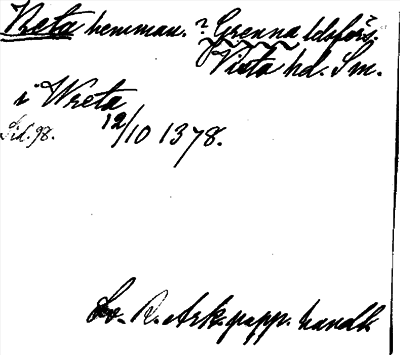 Vreta hemman. ? Grenna ldsförs.
Vista hd. Sm.
i Wreta
Sid. 98. 12/10 1378.
Sv. R. Ark. papp. handl.